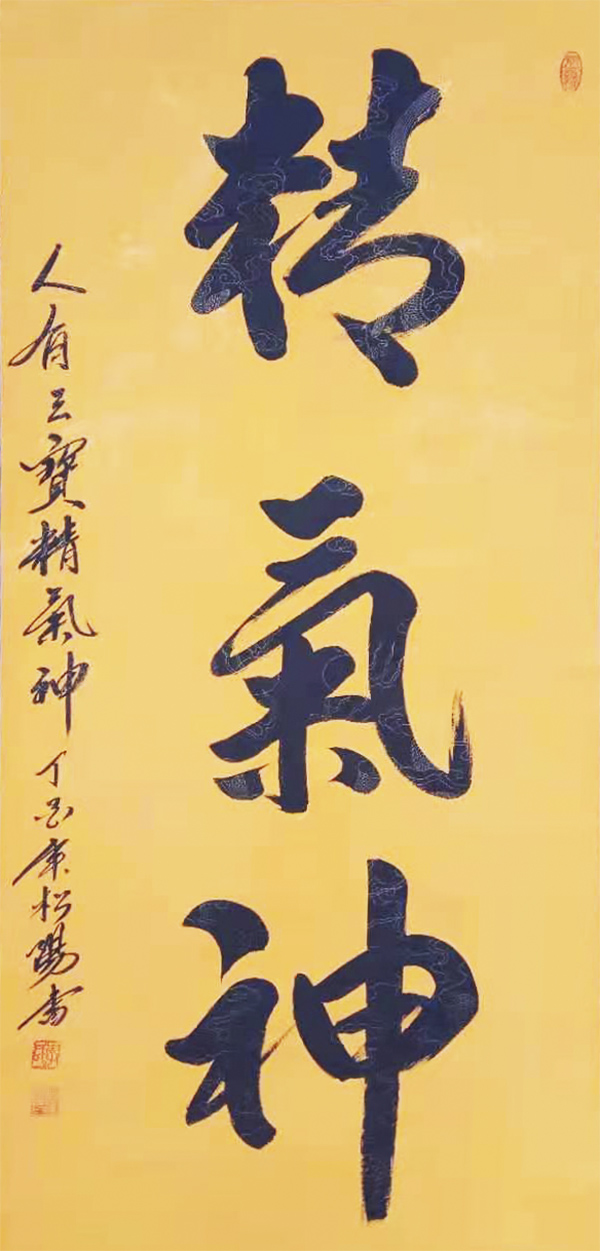 精氣神
人有三寶精氣神 丁酉年松陽書